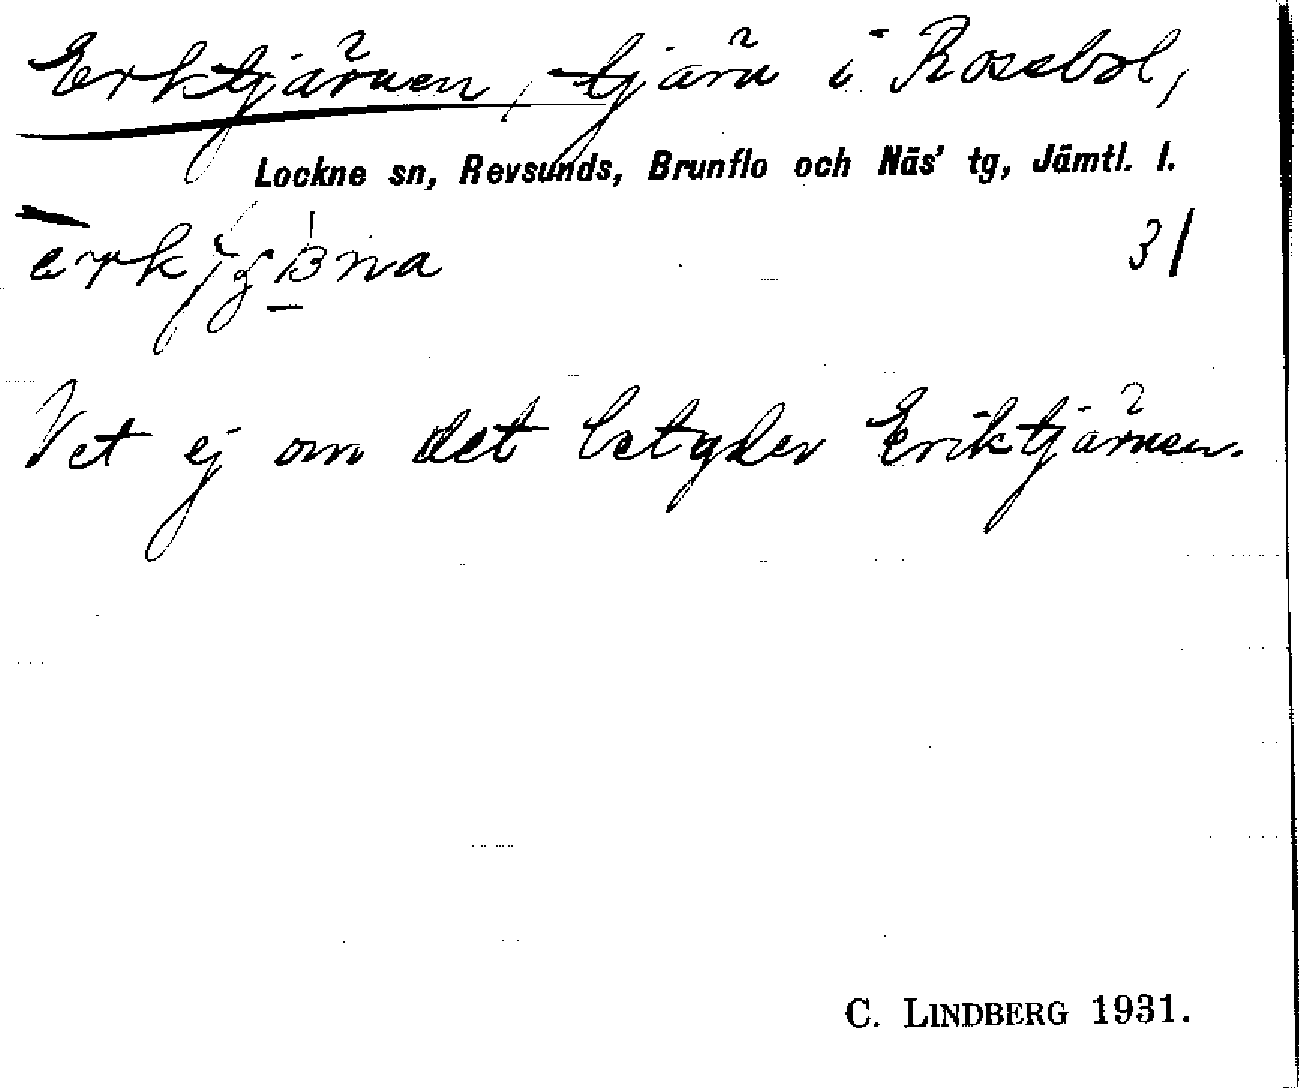 Erktjärnen, tjärn i Rosebol,
Lockne sn, Revsunds, Brunflo och Näs' tg, Jämtl. l.
31
Vet ej om det betyder Eriktjärnen.
C. LINDBERG 1931.